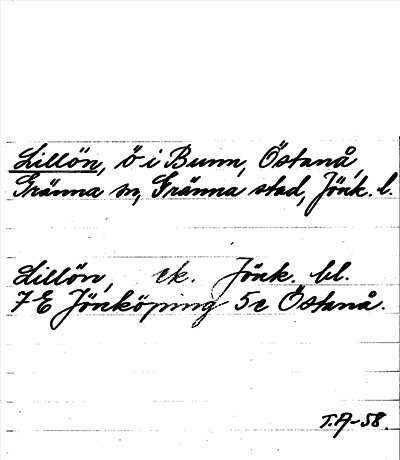 Lillön, ö i Bunn, Östanå,
Gränna sn, Gränna stad, Jönk. l.
Lillön, ek. Jönk. bl.
7 E Jönköping 5 c Östanå.
T.A-58.